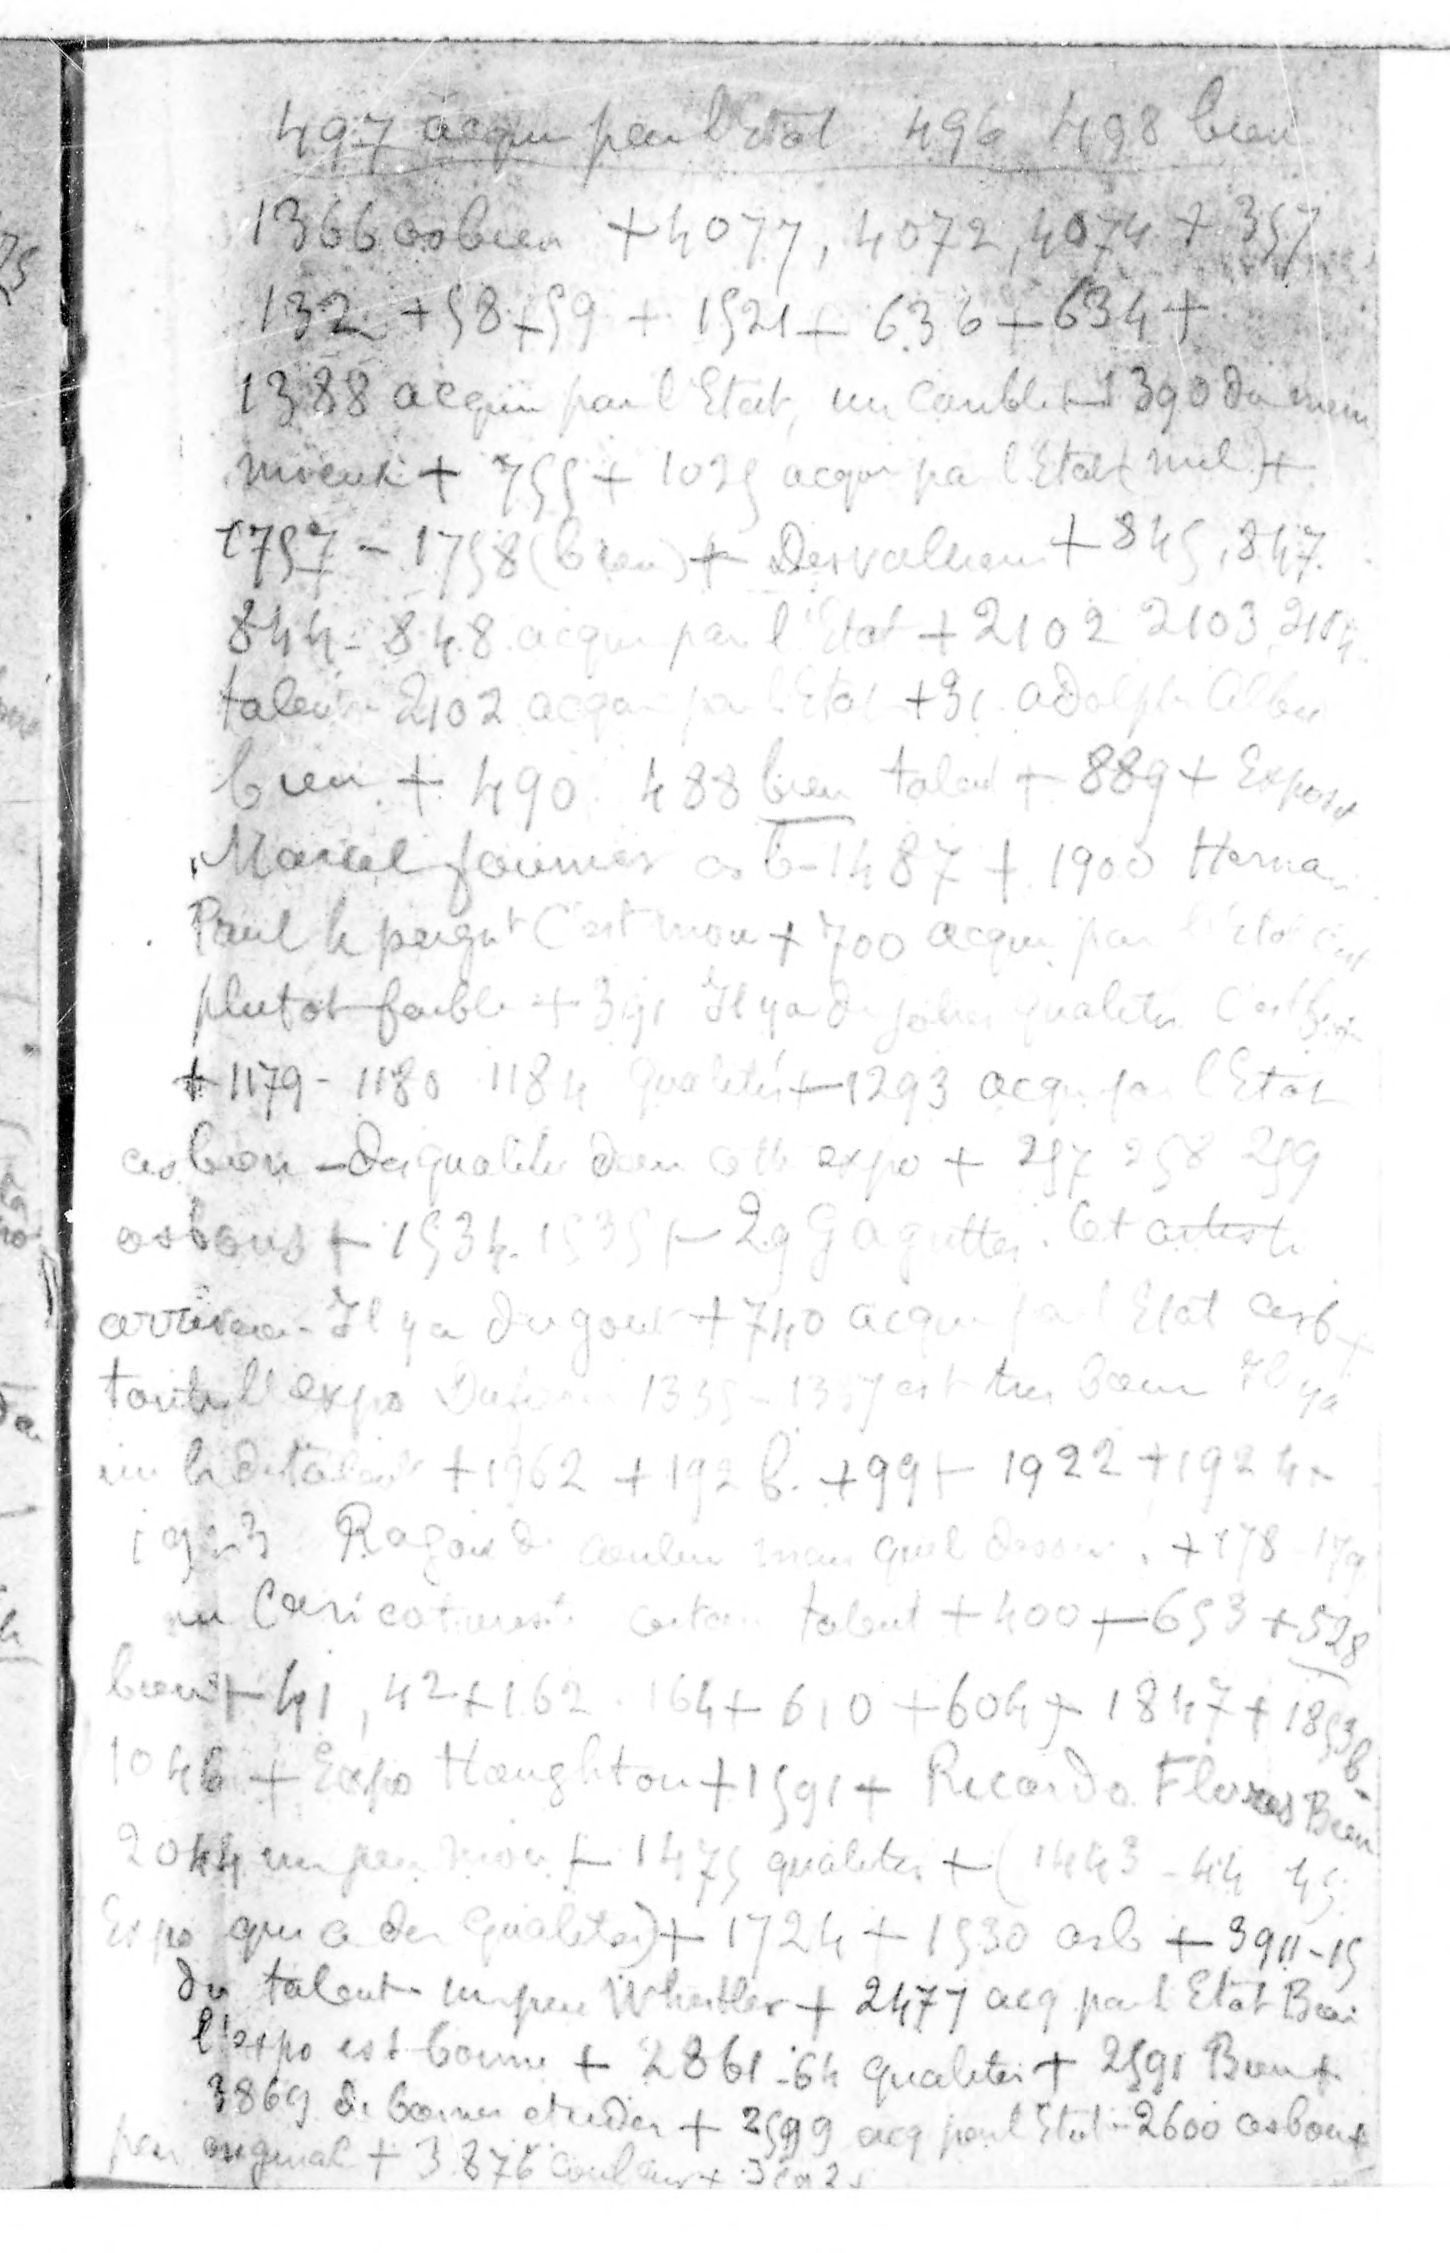 497 acquis par l'Etat 496 498 bien
1366 as bien + 4077, 4072, 4074 + 357
132 + 58 + 59 + 1521 + 636 + 634 +
1388 acquis par l'Etat, un comble + 1390 du
+ 755 + 1025 acquis par l'Etat (nul) +
1757 - 1758 (bien) + Desvallieres + 845, 847.
844 - 848 acquis par l'Etat + 2102 2103, 2104
talent - 2102 acquis par l'Etat + 31. Adolphe Albert
bien + 490. 488 bien talent + 889 + Expos
Marcel fournier as b - 1487 + 1900
Paul c'est mou + 700 acquis par l'Etat c'est
plutot faible + 391 Il y a de jolies qualites C'est bien
+ 1179 - 1180 1184 qualités + 1293 acquis par l'Etat
as bien - Des qualites dans cette expo + 257 258 259
as bons + 1534. 1535 + 29 Cet artiste
arrivera - Il y a du gout + 740 acquis par l'Etat as b +
toute l'expo 1335 - 1337 est tres bien Il y a
du talent + 1962 + 192 b. + 99 + 1922 + 1924 -
1923 de couleur mais quel dessin. + 178 - 179
un Caricaturiste certain talent + 400 + 653 + 528
bien + 41, 42 + 162. 164 + 610 + 604 + 1847 + 1853 b.
1046 + Expo Haughton + 1591 + Ricardo Flores Bien
2044 un peu mou + 1475 qualites + (1443 - 44 45.
Expo qui a des qualites) + 1724 + 1530 as b + 3911 - 15
du talent un peu Whistler + 2477 acq par l'Etat Bien
l'expo est bonne + 2861 - 64 qualités + 2591 Bien +
3869 de bonnes etudes + 2599 acq par l'Etat - 2600 as bon +
peu original + 3876 couleur +